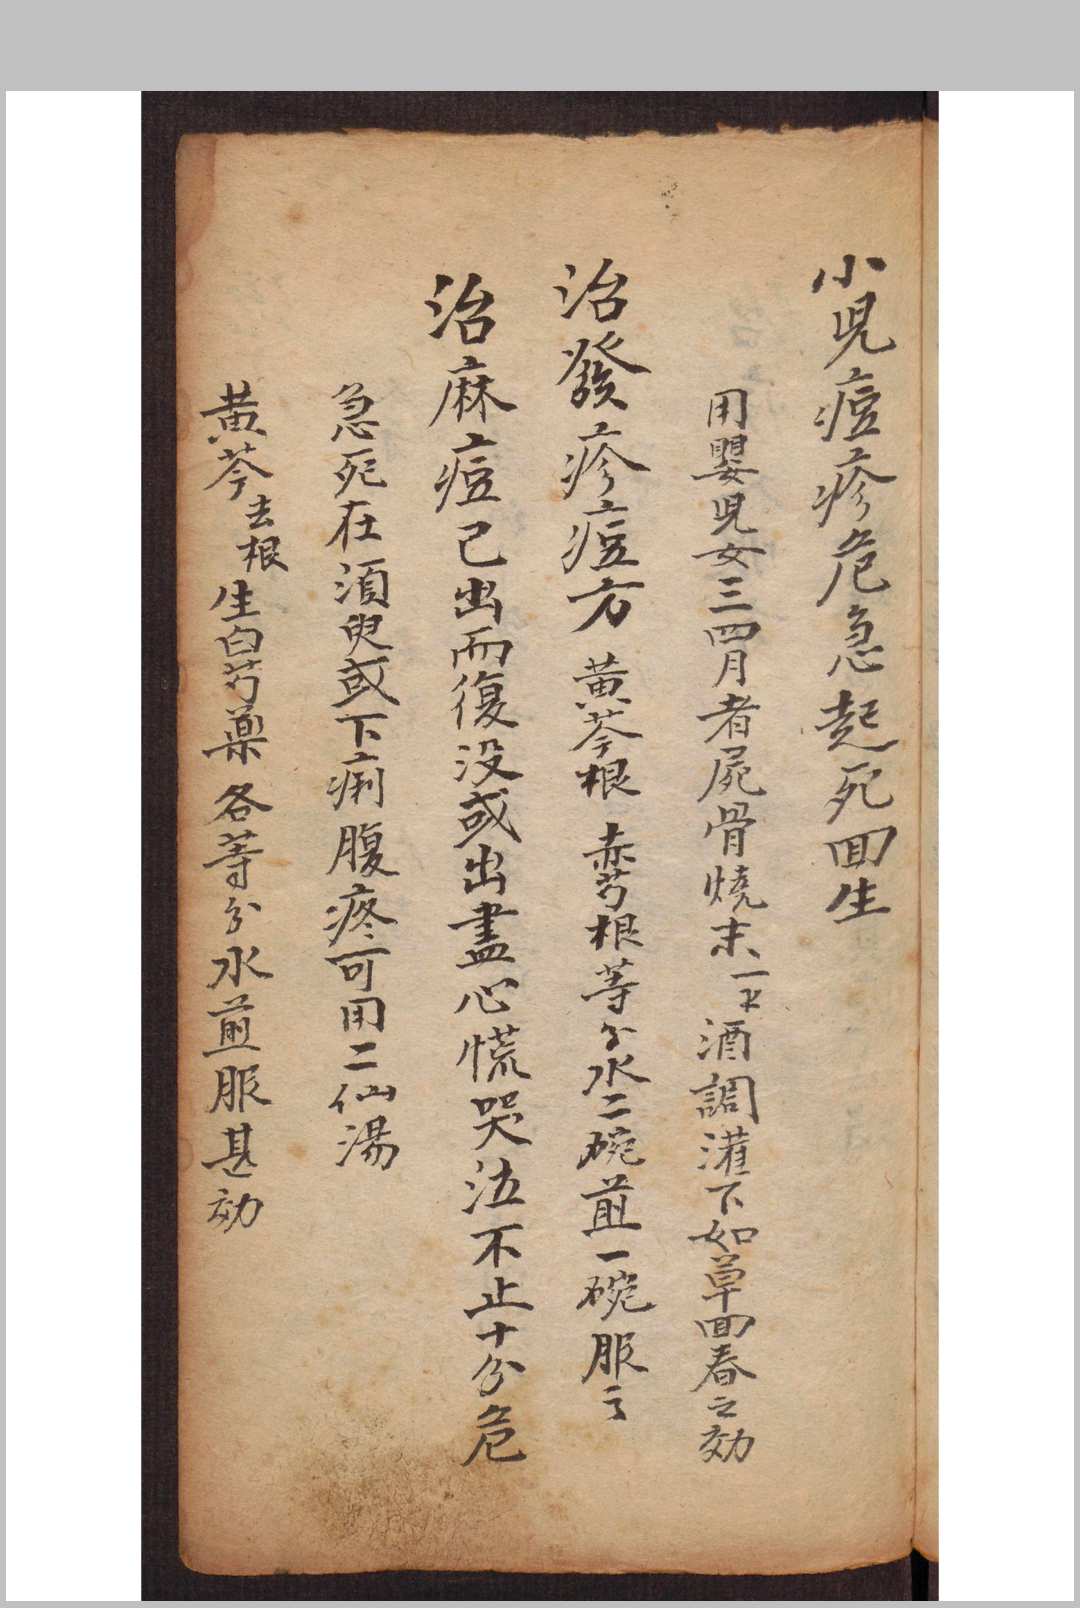 小児痘疹危急起死回生
用嬰児女三四月者屍骨燒末一酒調灌下如草回春之効
治發疹痘方 黄芩根 赤芍根等分水二碗煎一碗服
治麻痘已出而復没或出盡心慌哭泣不止十分危
急死在須臾或下痢腹疼可用二仙湯
黄芩去根生白芍藥各等分水煎服甚効